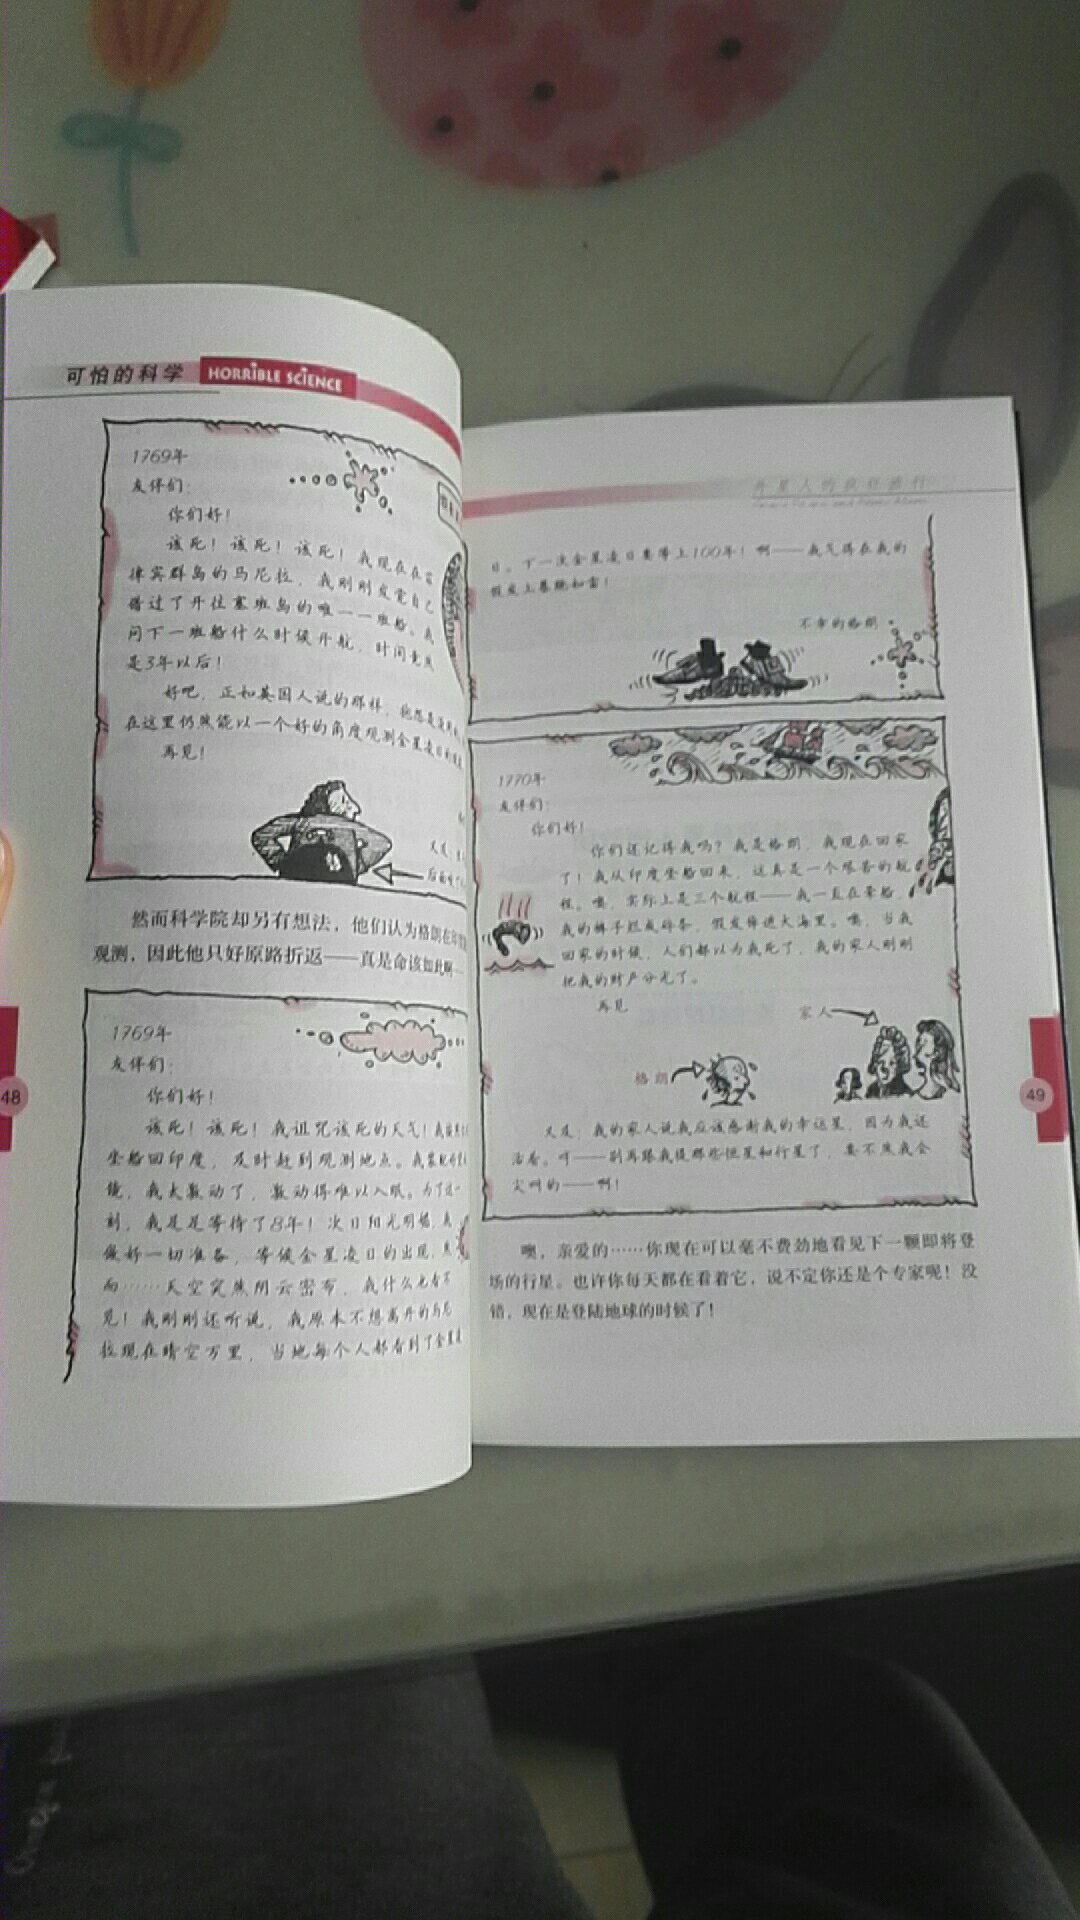 可怕的科学 HORRIBLE SCIENCE
1769年
友伴们：
你们好！
该死！该死！该死！我现在在菲
律宾群岛的马尼拉，我刚刚发觉自己
错过了开往塞班岛的唯一一班船。我
问下一班船什么时候开航，时间竟然
是3年以后！
好吧，正如英国人说的那样，
在这里仍然能以一个好的角度观测金星凌日
再见！
然而科学院却另有想法，他们认为格朗在
观测，因此他只好原路折返——真是命该如此啊
1769年
友伴们：
你们好！
该死！该死！我诅咒该死的天气！我
坐船回印度，及时赶到观测地点。我
镜，我太激动了，激动得难以入眠。为了这一
刻，我足足等待了8年！次日阳光明媚，我
做好一切准备，等候金星凌日的出现，然
而……天空突然阴云密布，我什么也看不
见！我刚刚还听说，我原本不想离开的马尼
拉现在晴空万里，当地每个人都看到了金星凌
48
外星人的疯狂旅行
日。下一次金星凌日要等上100年！啊——我气得在我的
假发上暴跳如雷！
不幸的格朗
1770年
友伴们：
你们好！
你们还记得我吗？我是格朗，我现在回家
了！我从印度坐船回来，这真是一个艰苦的航
程。噢，实际上是三个航程——我一直在晕船，
我的裤子烂成碎条，假发掉进大海里。噢，当我
回家的时候，人们都以为我死了，我的家人刚刚
把我的财产分光了。
再见
家人
格朗
又及：我的家人说我应该感谢我的幸运星，因为我还
活着。吓——别再跟我提那些恒星和行星了，要不然我会
尖叫的——啊！
噢，亲爱的……你现在可以毫不费劲地看见下一颗即将登
场的行星。也许你每天都在看着它，说不定你还是个专家呢！没
错，现在是登陆地球的时候了！
49